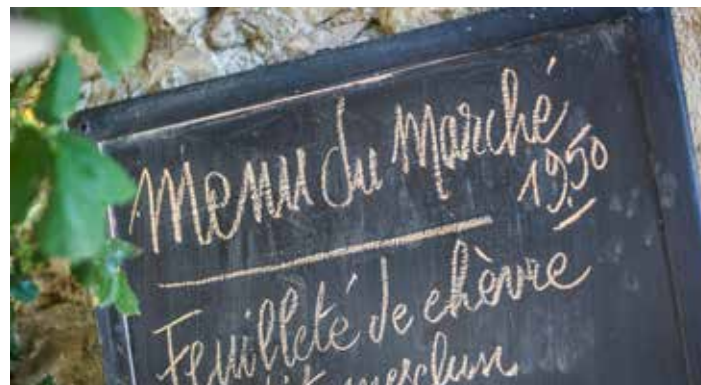 Menu du Marché
19.50
Feuilleté de chèvre
mesclun